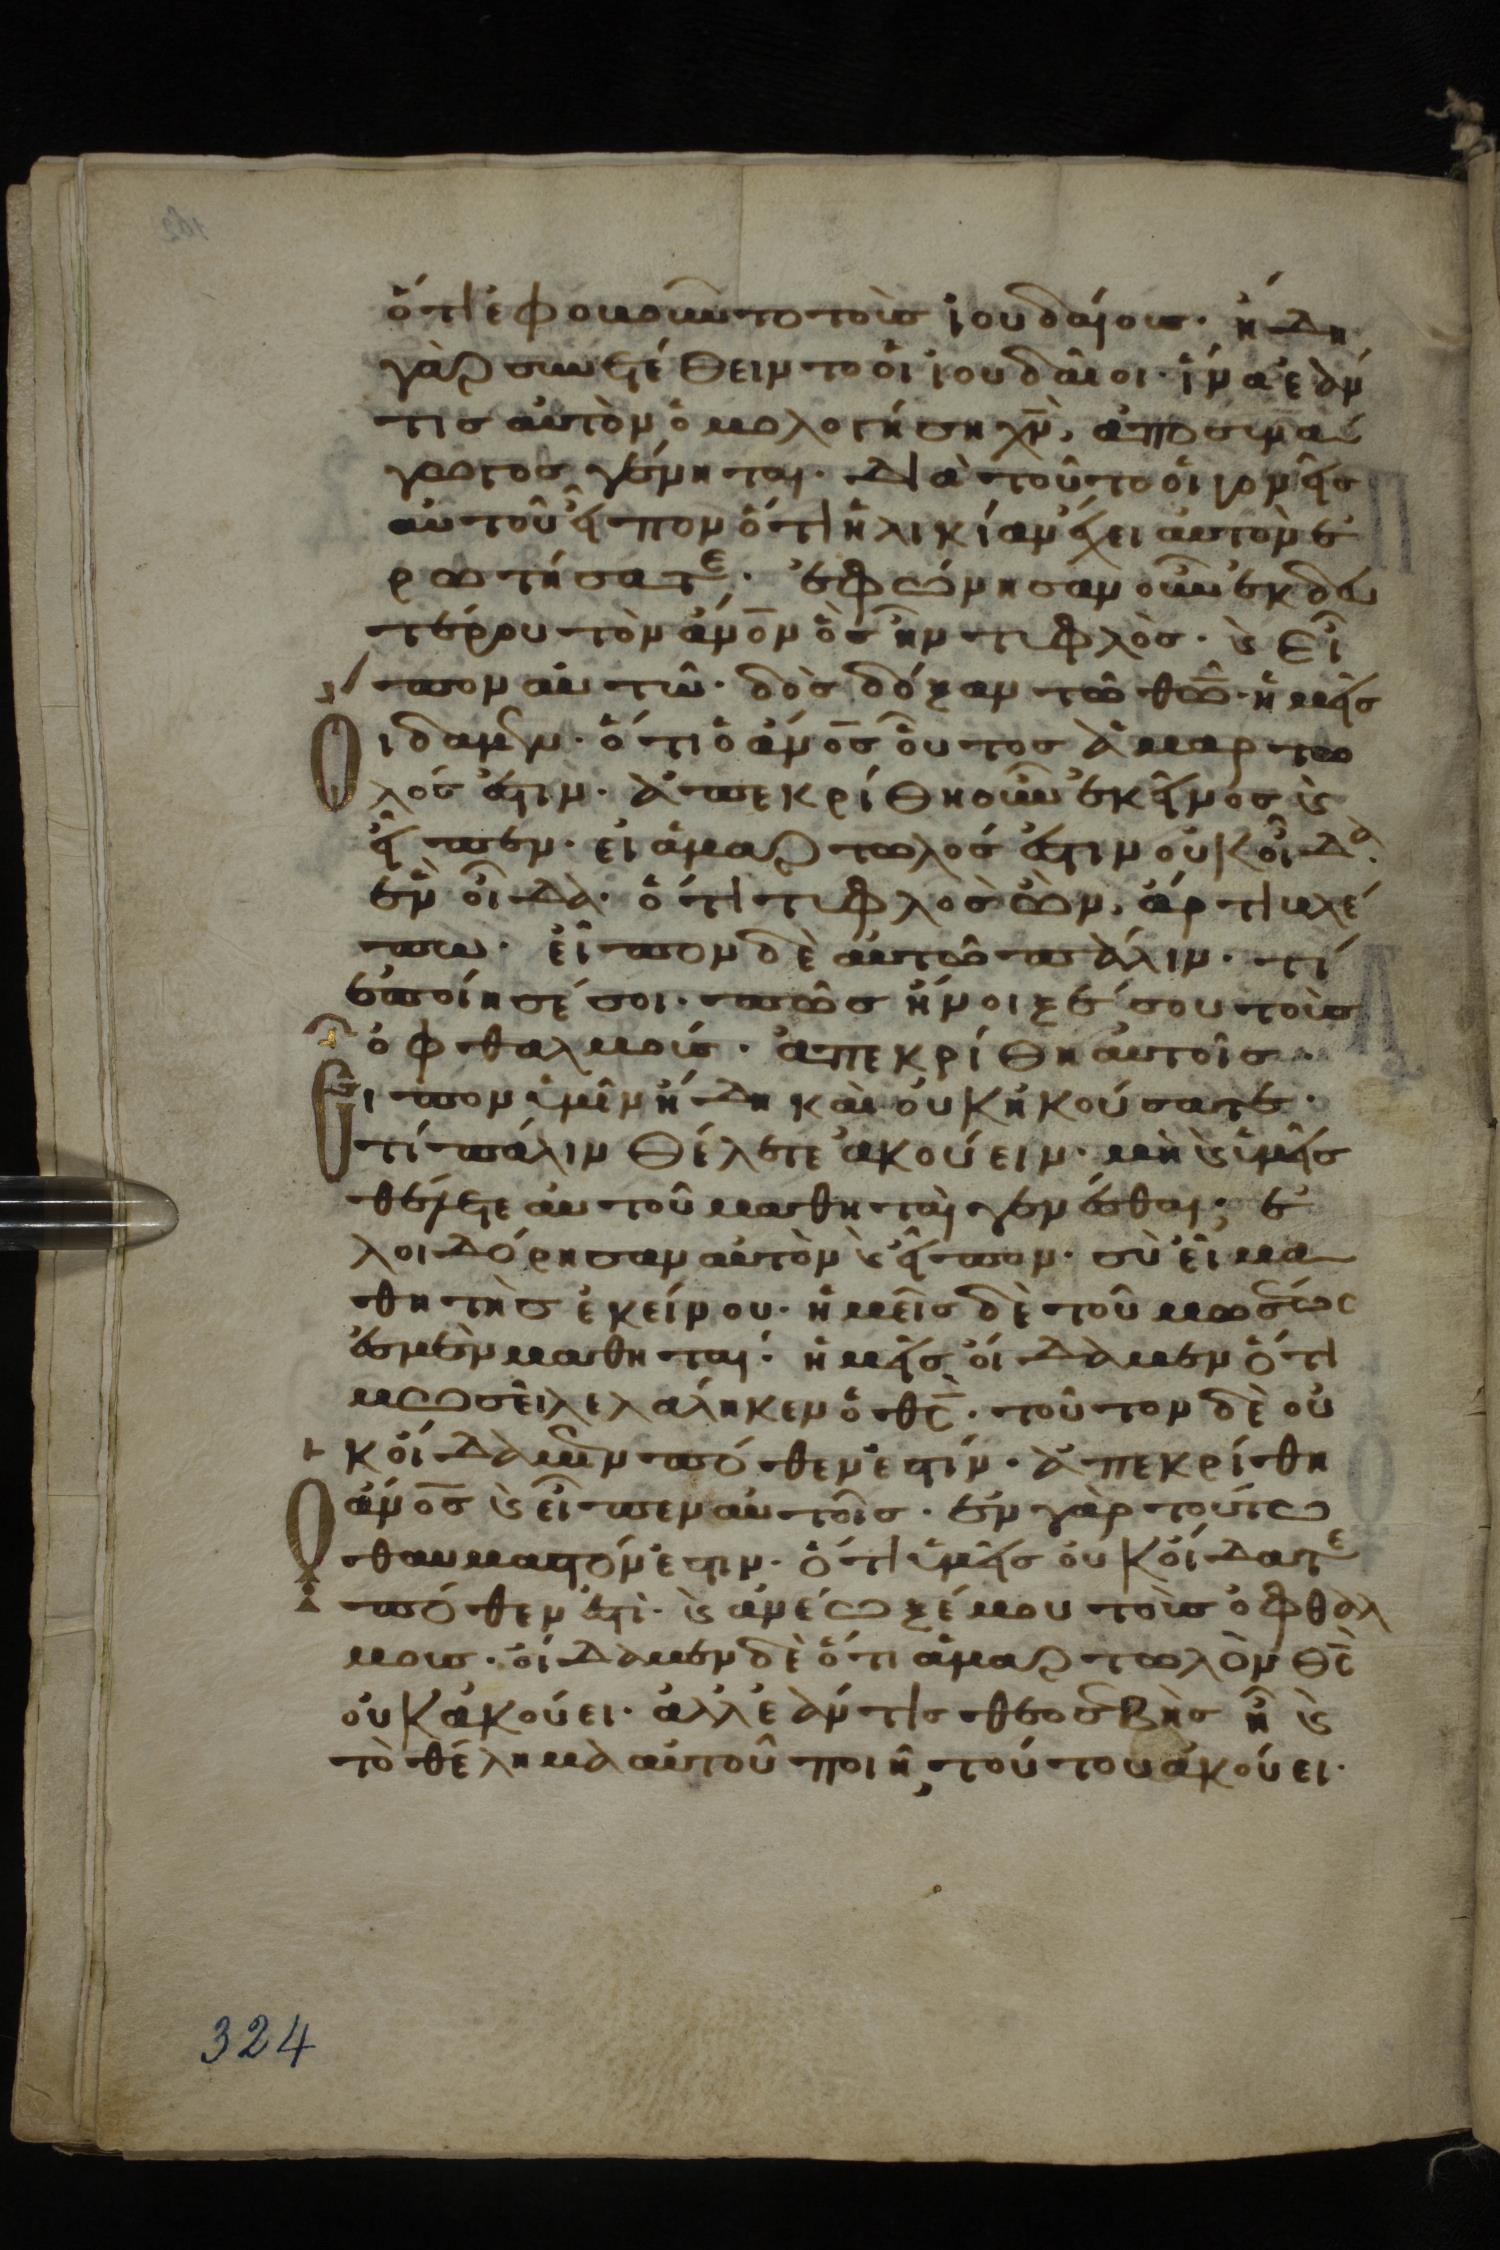 ὅτι ἐφοβοῦντο τοὺς ἰουδαίους· ἤδη
γὰρ συνετέθειντο οἱ ἰουδαῖοι· ἵνα ἐάν
τις αὐτὸν ὁμολογήση χν̅, ἀποσυνά
γωγος γένηται· διὰ τοῦτο οἱ γονεῖς
αὐτοῦ εἶπον ὅτι ἡλικίαν ἔχει αὐτὸν ἐ
ρωτήσατε· ἐφώνησαν οὖν ἐκ δευ
τέρου τὸν ἄνο̅ν ὃς ἦν τυφλὸς· ϗ εἶ
πον αὐτῶ· δὸς δόξαν τῶ θω̅· ἡμεῖς
Οἴδαμεν· ὅτι ὁ ἄνο̅ς οὗτος ἁμαρτω
λός ἐστιν· ἀπεκρίθη οὖν ἐκεῖνος ϗ
εἶπεν· εἰ ἁμαρτωλός ἐστιν οὐκ οἶδα·
ἓν οἶδα· ὅτι τυφλὸς ὢν, ἄρτι βλέ
πω· εἶπον δὲ αὐτῶ πάλιν· τί
ἐποίησέ σοι· πῶς ἤνοιξέ σου τοὺς
ὀφθαλμούς· ἀπεκρίθη αὐτοῖς·
Εἶπον ὑμῖν ἤδη καὶ οὐκ ἠκούσατε·
τί πάλιν θέλετε ἀκούειν· μὴ ϗ ὑμεῖς
θέλετε αὐτοῦ μαθηταὶ γενέσθαι; ἐ
λοιδόρησαν αὐτὸν ϗ εἶπον· σὺ εἶ μα
θητὴς ἐκείνου· ἡμεῖς δὲ τοῦ μωσέως
ἐσμὲν μαθηταί· ἡμεῖς οἴδαμεν ὅτι
μωσεῖ λελάληκεν ὁ θς̅· τοῦτον δὲ οὐ
κ οἴδαμεν πόθεν ἐστίν· ἀπεκρίθη
Ὁ ἄνο̅ς ϗ εἶπεν αὐτοῖς· ἐν γὰρ τούτω
θαυμαστόν ἐστιν· ὅτι ὑμεῖς οὐκ οἴδατε
πόθεν ἐστὶ· ϗ ἀνέωξέ μου τοὺς ὀφθαλ
μους· οἴδαμεν δὲ ὅτι ἁμαρτωλὸν θς̅
οὐκ ἀκούει· ἀλλ' ἐάν τις θεοσεβὴς ἦ ϗ
τὸ θέλημα αὐτοῦ ποιῆ, τούτου ἀκούει·
324